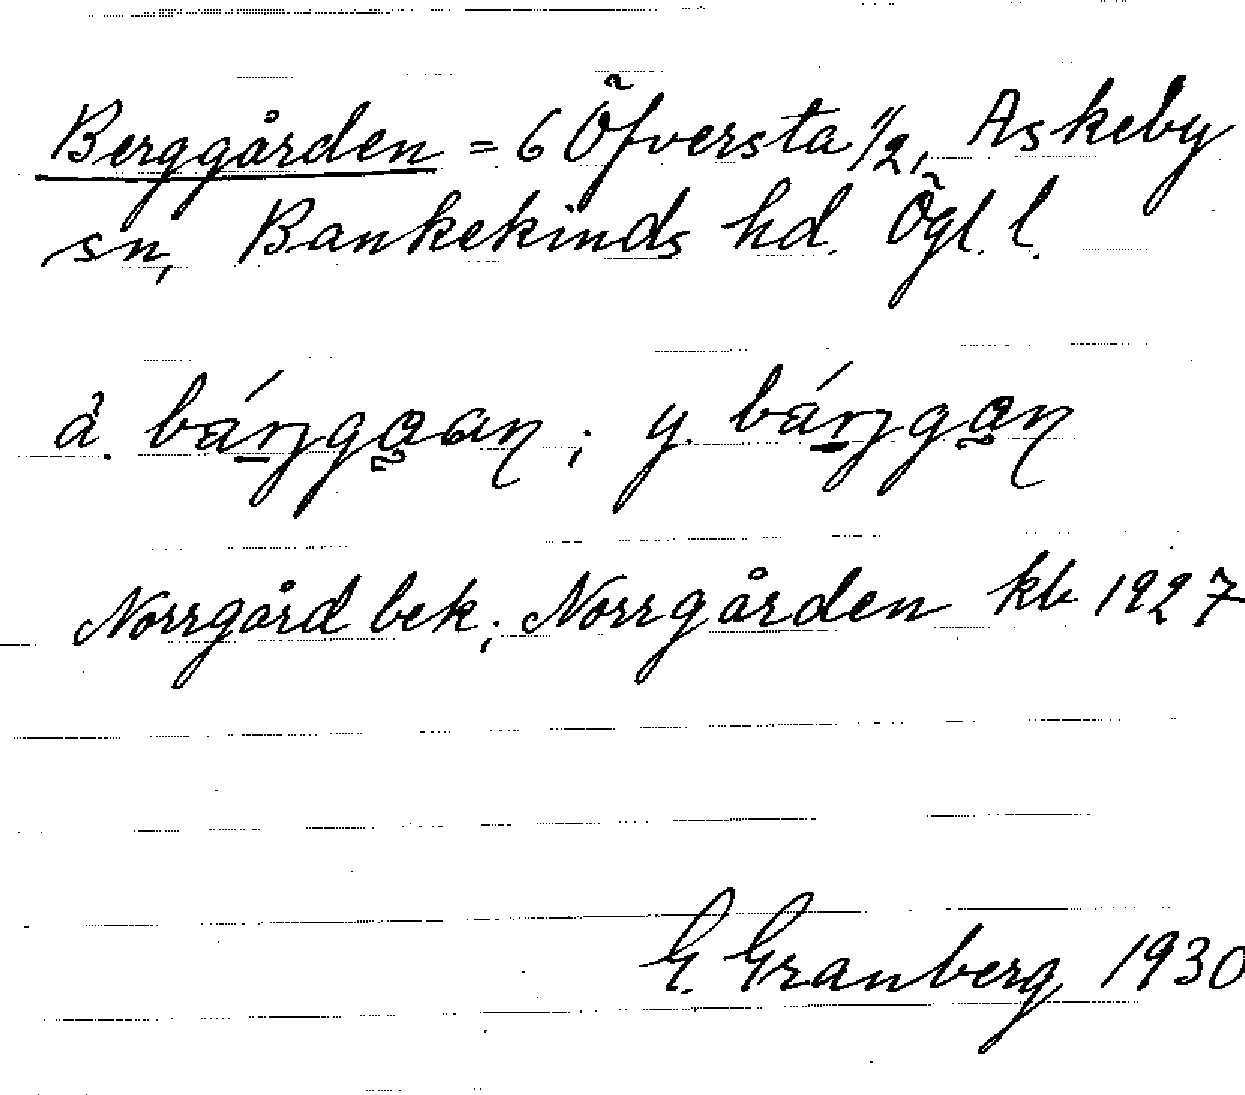 Berggården = 6 Öfversta 1/2, Askeby
sn, Bankekinds hd. Ögl. l.
å. ; y.
Norrgård bek; Norrgården kb 1927
E. Granberg 1930